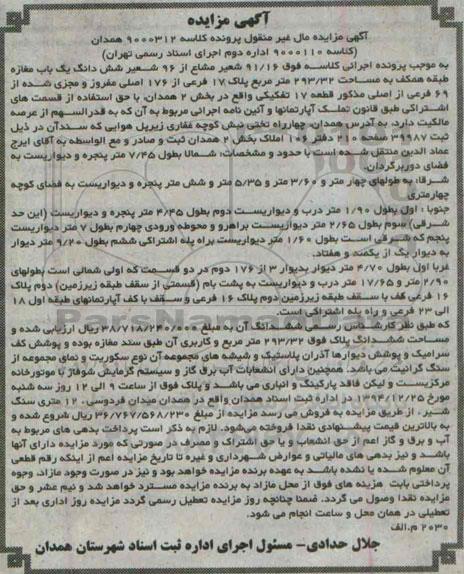 آگهی مزایده
آگهی مزایده مال غیر منقول پرونده کلاسه ۹۰۰۰۳۱۲ همدان
(کلاسه ۹۰۰۰۱۱۰ اداره دوم اجرای اسناد رسمی تهران)
به موجب پرونده اجرائی کلاسه فوق ۹۱/۱۶ شعیر مشاع از ۹۶ شعیر شش دانگ یک باب مغازه
طبقه همکف به مساحت ۲۹۳/۳۲ متر مربع پلاک ۱۷ فرعی از ۱۷۶ اصلی مفروز و مجزی شده از
۶۹ فرعی از اصلی مذکور قطعه ۱۷ تفکیکی واقع در بخش ۲ همدان، با حق استفاده از قسمت های
اشتراکی طبق قانون تملک آپارتمانها و آئین نامه اجرائی مربوط به آن که به قدرالسهم از عرصه
مالکیت دارد، به آدرس همدان، چهارراه تختی نبش کوچه غفاری زیرپل هوایی که سند آن در ذیل
ثبت ۳۹۹۸۷ صفحه ۲۱۰ دفتر ۱۰۶ املاک بخش ۲ همدان ثبت و صادر و مع الواسطه به آقای ایرج
عماد الدین منتقل شده است با حدود و مشخصات: شمالا بطول ۷/۴۵ متر پنجره و دیواریست به
فضای دوربرگردان.
شرقا: به طولهای چهار متر و ۳/۶۰ متر و ۵/۳۵ متر و شش متر پنجره و دیواریست به فضای کوچه
چهارمتری
جنوبا : اول بطول ۱/۹۰ متر درب و دیواریست دوم بطول ۴/۴۵ متر پنجره و دیواریست (این حد
شرقی) سوم بطول ۲/۶۵ متر دیواریست براهرو و محوطه ورودی چهارم بطول ۷ متر دیواریست
پنجم که شرقی است بطول ۱/۶۰ متر دیواریست براه پله اشتراکی ششم بطول ۹/۲۰ متر دیوار
به دیوار یک از یکصد و هفتاد.
غربا اول بطول ۴/۷۰ متر دیوار بدیوار ۳ از ۱۷۶ دوم در دو قسمت که اولی شمالی است بطولهای
۲/۹۰ متر و ۱۷/۶۵ متر درب و دیواریست به پشت بام (قسمتی از سقف طبقه زیرزمین) دوم پلاک
۱۶ فرعی کف با سقف طبقه زیرزمین دوم پلاک ۱۶ فرعی و سقف با کف آپارتمانهای طبقه اول ۱۸
الی ۲۳ فرعی و راه پله اشتراکی است.
که طبق نظر کارشناس رسمی ششدانگ آن به مبلغ ۳۸/۷۱۸/۲۴۰/۰۰۰ ریال ارزیابی شده و
مساحت ششدانگ پلاک فوق ۲۹۳/۳۲ متر مربع و کاربری آن طبق سند مغازه بوده و پوشش کف
سرامیک و پوشش دیوارها آذران پلاستیک و شیشه های مجموعه آن نوع سکوریت و نمای مجموعه از
سنگ گرانیت می باشد. همچنین دارای انشعابات آب برق گاز و سیستم گرمایش شوفاژ با موتورخانه
مرکزیست و لیکن فاقد پارکینگ و انباری می باشد و پلاک فوق از ساعت ۹ الی ۱۲ روز سه شنبه
مورخ ۱۳۹۴/۱۲/۲۵ در اداره ثبت اسناد همدان واقع در همدان میدان فردوسی، ۱۲ متری سنگ
شیر، از طریق مزایده به فروش می رسد مزایده از مبلغ ۳۶/۷۶۷/۵۶۸/۲۳۰ ریال شروع شده و
به بالاترین قیمت پیشنهادی نقدا فروخته می‌شود. لازم به ذکر است پرداخت بدهی های مربوط به
آب و برق و گاز اعم از حق انشعاب و یا حق اشتراک و مصرف در صورتی که مورد مزایده دارای آنها
باشد و نیز بدهی های مالیاتی و عوارض شهرداری و غیره تا تاریخ مزایده اعم از اینکه رقم قطعی
آن معلوم شده یا نشده باشد به عهده برنده مزایده خواهد بود و نیز در صورت وجود مازاد، وجوه
پرداختی بابت هزینه های فوق از محل مازاد به برنده مزایده مسترد خواهد شد و نیم عشر و حق
مزایده نقدا وصول می گردد. ضمنا چنانچه روز مزایده تعطیل رسمی گردد مزایده روز اداری بعد از
تعطیلی در همان محل و ساعت انجام می شود.
۲۰۳۰ م.الف
جلال حدادی– مسئول اجرای اداره ثبت اسناد شهرستان همدان